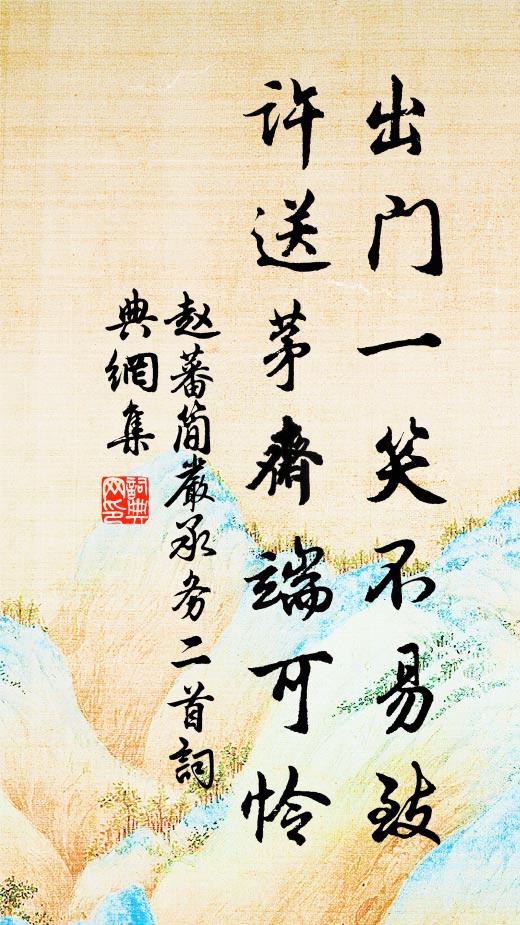 出门一笑不易致
许送茅斋端可怜
赵蕃简严承务二首词
典網集
詞典
网印